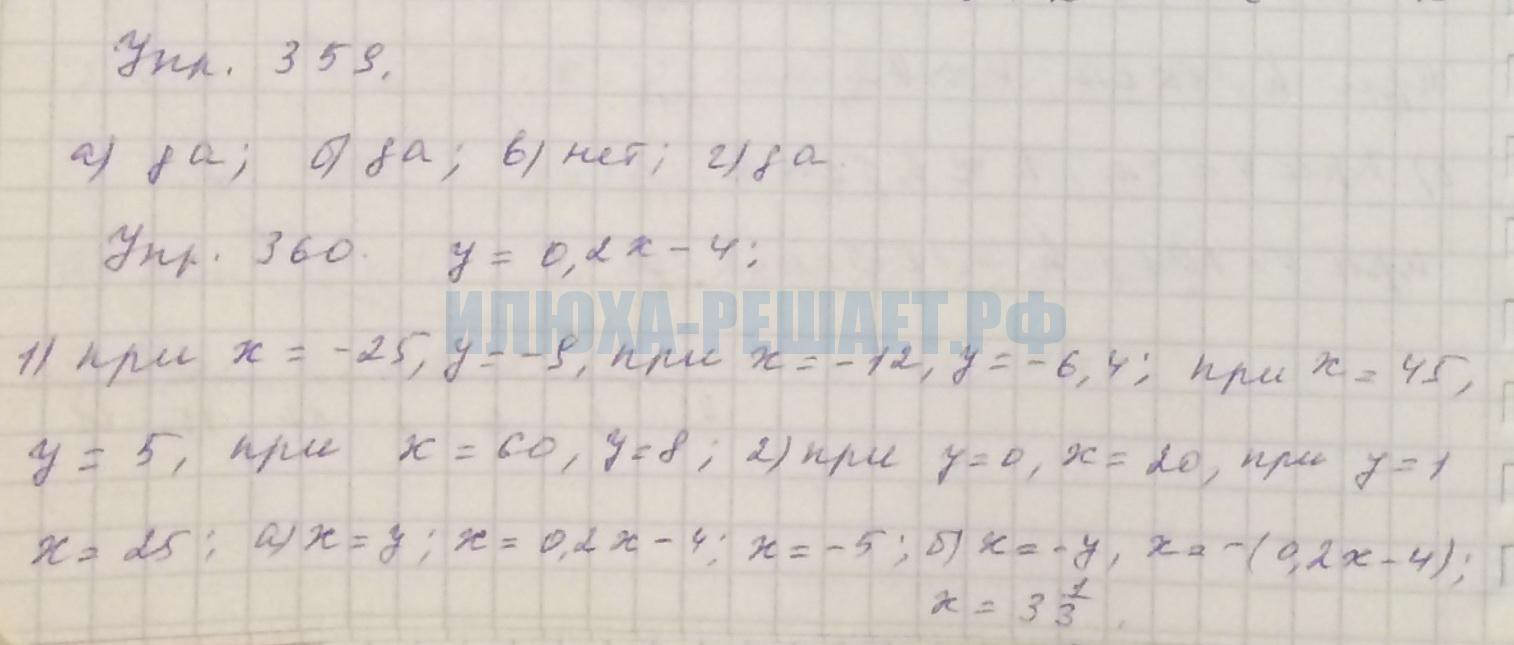 Упр. 359.
а) да; б) да; в) нет; г) да.
Упр. 360. y = 0,2x - 4;
ИЛЮХА-РЕШАЕТ.РФ
1) при x = -25, y = -9, при x = -12, y = -6,4; при x = 45,
y = 5, при x = 60, y = 8; 2) при y = 0, x = 20, при y = 1
x = 25; а) x = y; x = 0,2x - 4; x = -5; б) x = -y, x = -(0,2x - 4);
x = 3 1/3.